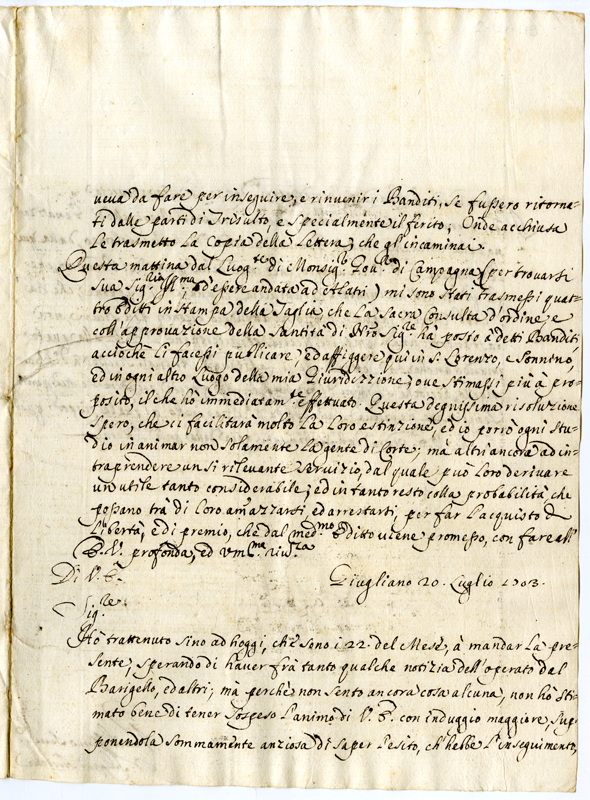 veva da fare per inseguire, e rinvenir i Banditi, se fussero ritorna-
ti dalle parti di Trisulto, e specialmente il ferito; Onde acchiusa
Le trasmetto La Copia della Lettera, che gl'incaminai.
Questa mattina dal Luog.te di Monsig.r Gov.re di Campagna (per trovarsi
Sua Sig.ria Ill.ma, ed essere andata ad Alatri) mi sono stati trasmessi quat-
tro editti in stampa della Taglia, che La Sacra Consulta d'ordine, e
coll'approvazione della Santità di Nro Sig.re hà posto à detti Banditi,
acciochè li facessi publicare, ed affiggere qui in S. Lorenzo, e Sonnino,
ed in ogni altro Luogo della mia Giurisdizzione, ove stimassi più à pro-
posito, il che hò immediatam.te effettuato. Questa degnissima risoluzione
spero, che ci faciliterà molto La Loro estinzione, ed io porrò ogni stu-
dio in animar non solamente La gente di Corte, mà altri ancora ad in-
traprendere un si rilevante servizio, dal quale può Loro derivare
un utile tanto considerabile; ed in tanto resto colla probabilità, che
possano trà di Loro amazzarsi ed arrestarsi, per far L'acquisto di
Libertà, e di premio, che dal med.mo Editto viene promesso, con fare all'
E. V. profonda, ed um.ma riv.za
Di V. E.
Giugliano 20. Luglio 1703.
Sig.re
Hò trattenuto sino ad hoggi, che sono i 22. del Mese, à mandar La pre-
sente, sperando di haver frà tanto qualche notizia dell'operato dal
Barigello, ed altri; mà perchè non sento ancora cosa alcuna, non hò sti-
mato bene di tener sospeso L'animo di V. E. con induggio maggiore, sup-
ponendola sommamente anziosa di saper L'esito, ch'hebbe L'inseguimento,